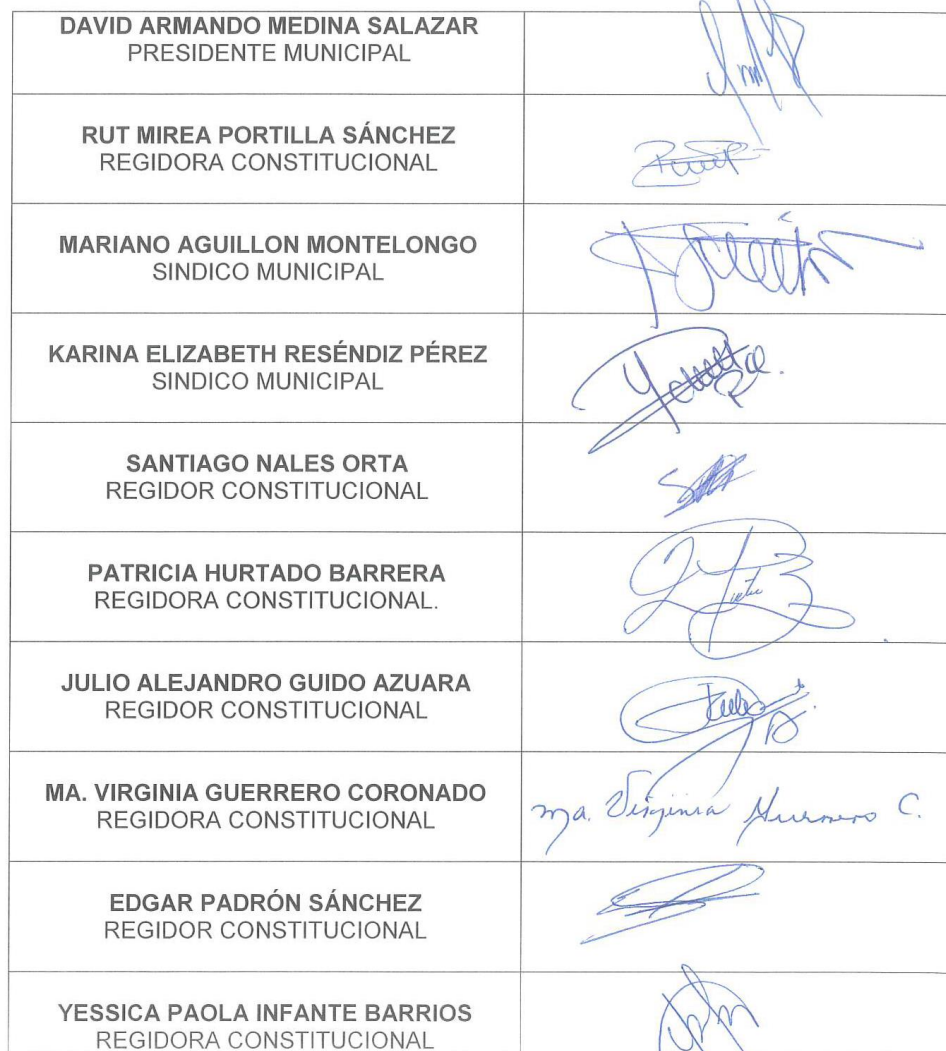 DAVID ARMANDO MEDINA SALAZAR
PRESIDENTE MUNICIPAL
RUT MIREA PORTILLA SÁNCHEZ
REGIDORA CONSTITUCIONAL
MARIANO AGUILLON MONTELONGO
SINDICO MUNICIPAL
KARINA ELIZABETH RESÉNDIZ PÉREZ
SINDICO MUNICIPAL
SANTIAGO NALES ORTA
REGIDOR CONSTITUCIONAL
PATRICIA HURTADO BARRERA
REGIDORA CONSTITUCIONAL.
JULIO ALEJANDRO GUIDO AZUARA
REGIDOR CONSTITUCIONAL
MA. VIRGINIA GUERRERO CORONADO
REGIDORA CONSTITUCIONAL
Ma. Virginia Guerrero C.
EDGAR PADRÓN SÁNCHEZ
REGIDOR CONSTITUCIONAL
YESSICA PAOLA INFANTE BARRIOS
REGIDORA CONSTITUCIONAL